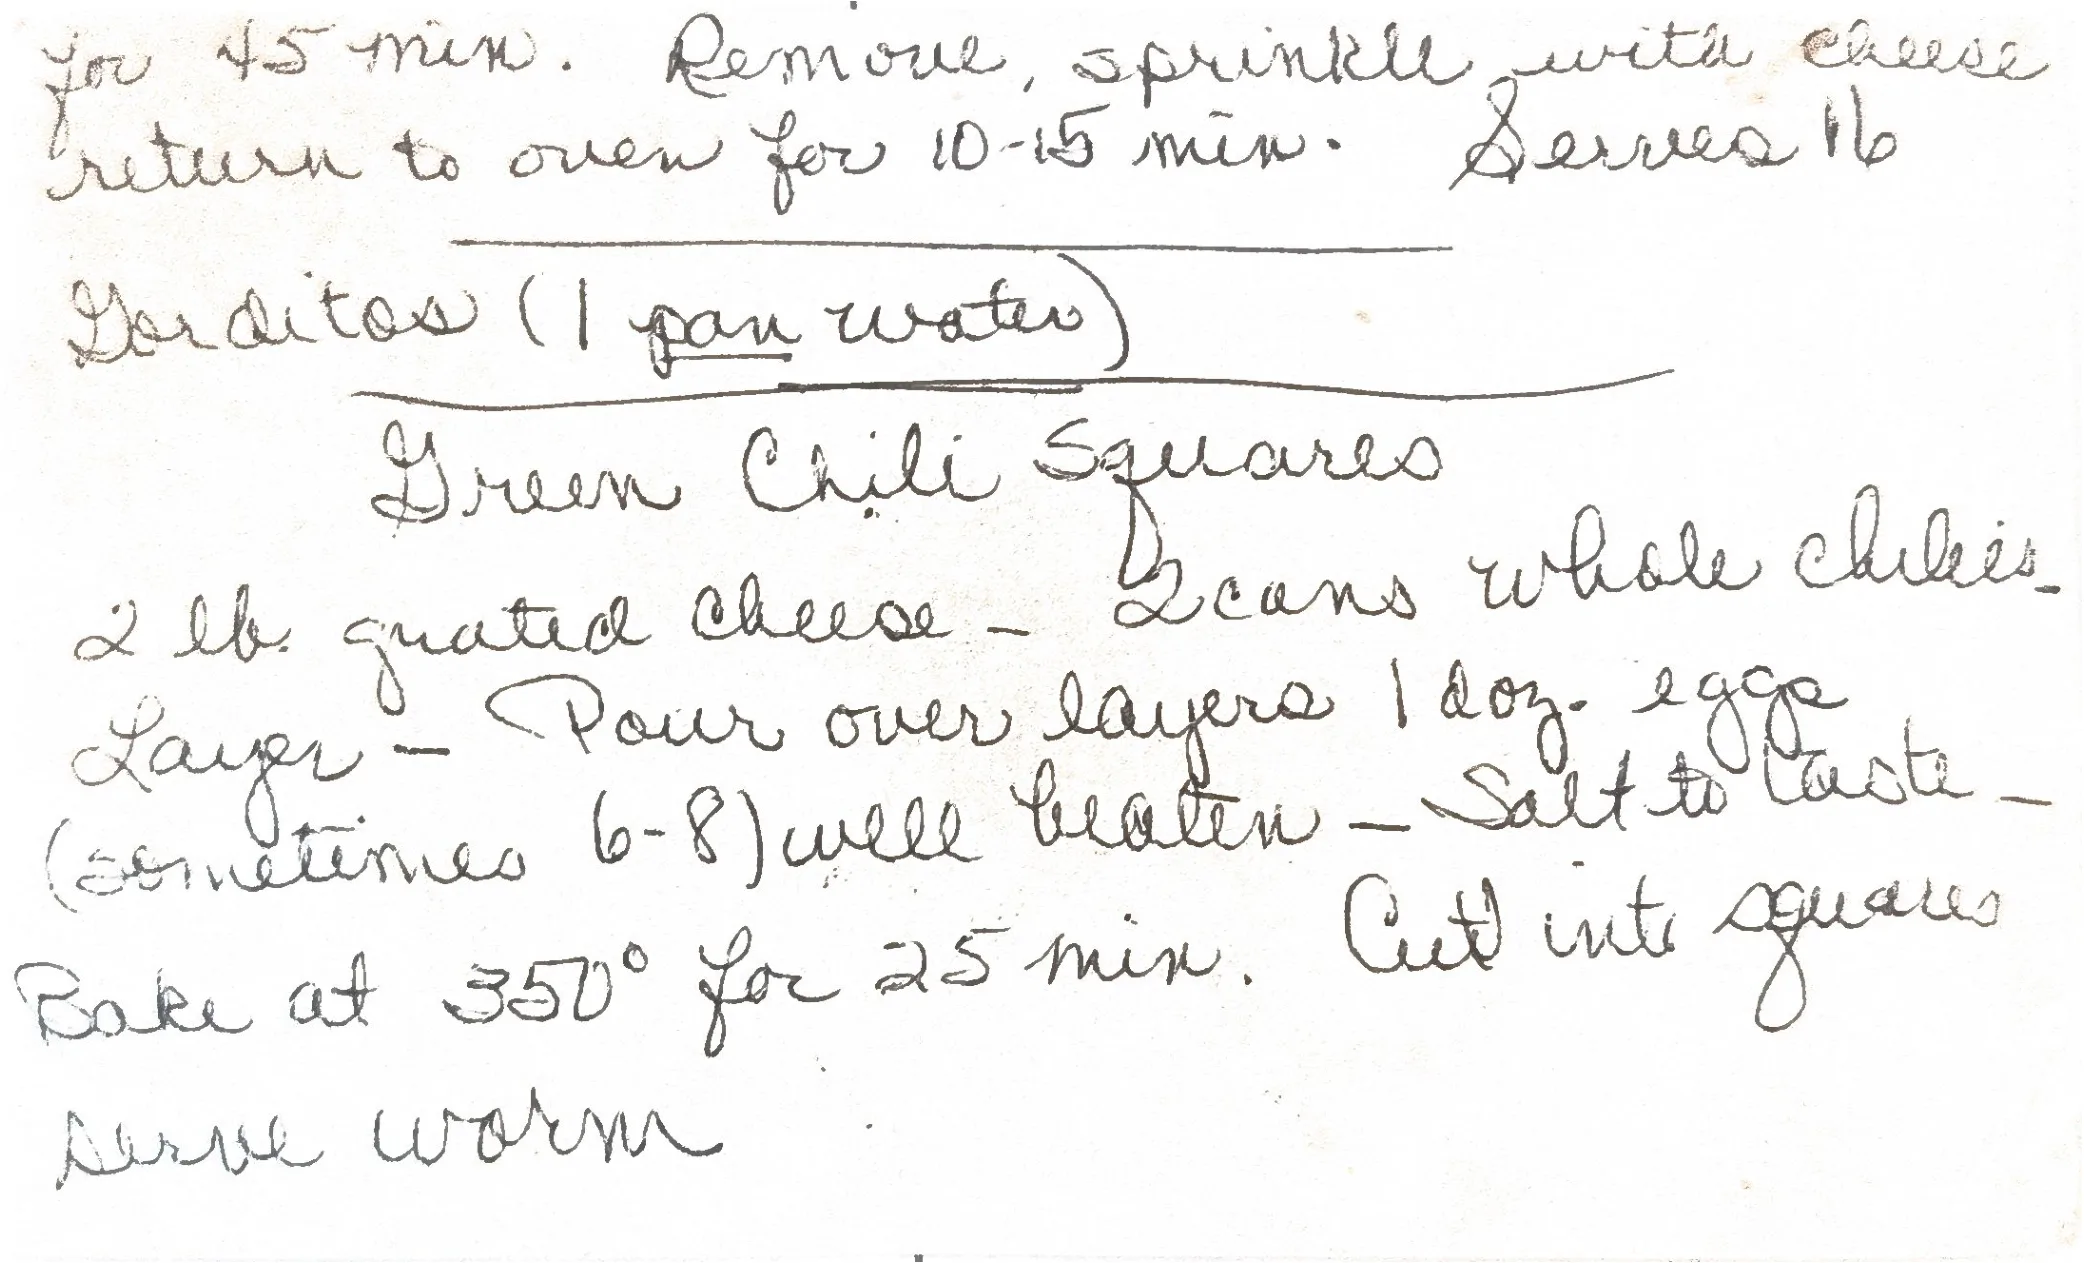 for 45 min. Remove, sprinkle with cheese
return to oven for 10-15 min. Serves 16
Gorditos (1 pan water)
Green Chili Squares
2 lb. grated cheese - 2 cans whole chilies -
Layer - Pour over layers 1 doz. eggs
(sometimes 6-8) well beaten - Salt to taste -
Bake at 350° for 25 min. Cut into squares
serve warm